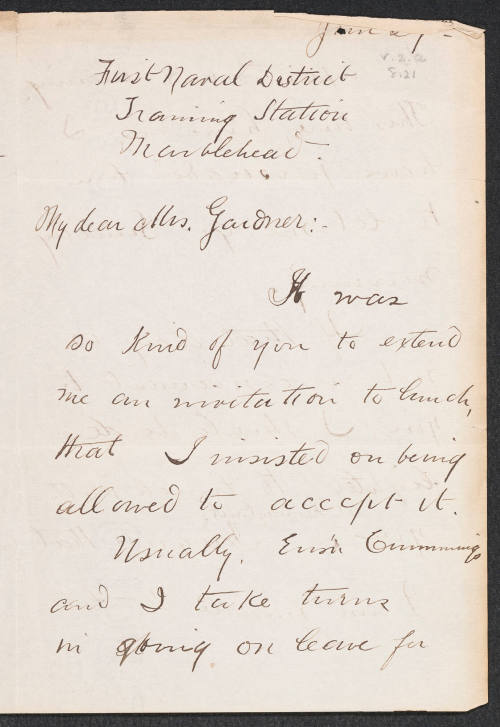 June 29 -
v. 2. 12
8:21
First Naval District
Training Station
Marblehead.
My dear Mrs. Gardner:-
It was
so kind of you to extend
me an invitation to lunch,
that I insisted on being
allowed to accept it.
Usually, Ensn Cummings
and I take turns
in going on leave for